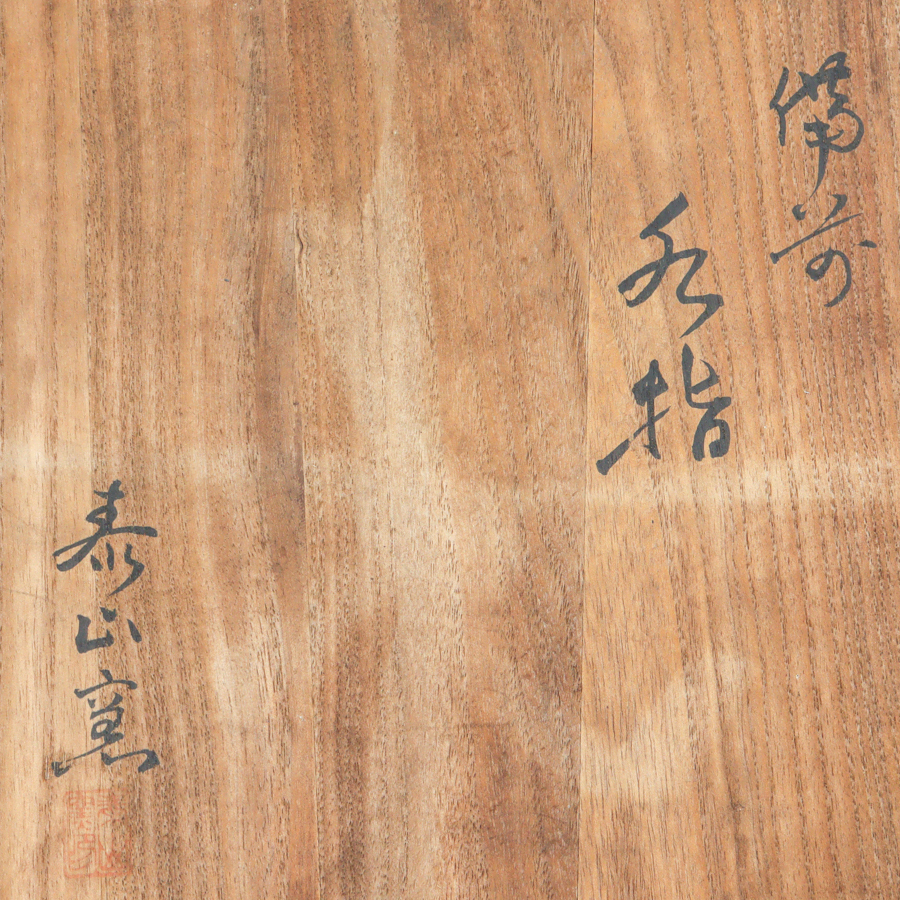 備前
水指
泰山窯